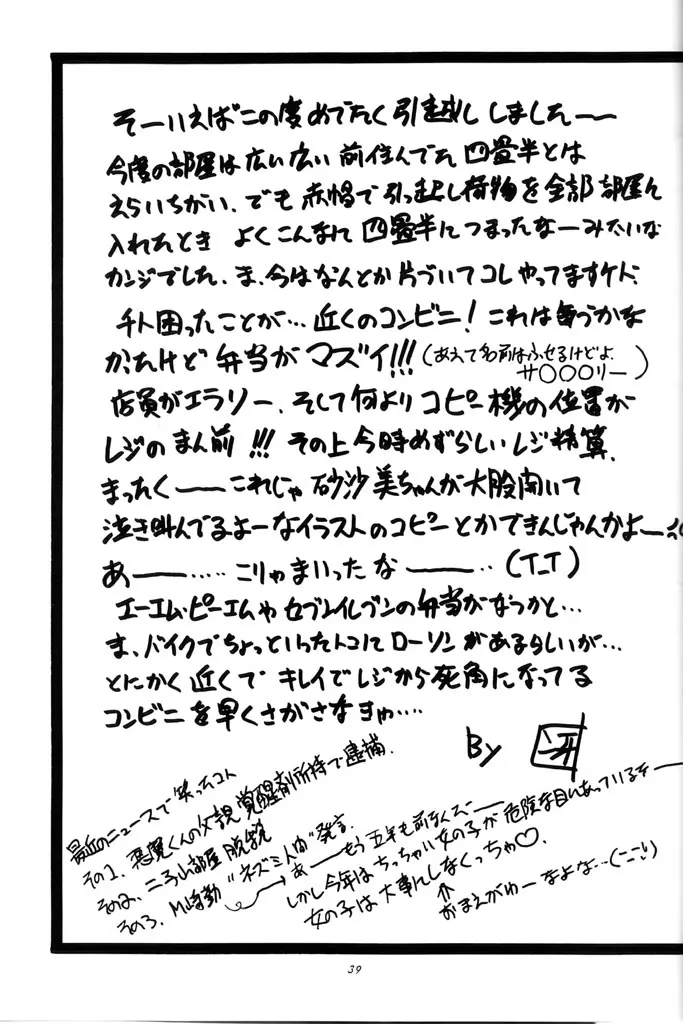 そーいえばこの度めでたく引越ししました——
今度の部屋は広い広い前住んでた四畳半とは
えらいちがい、でも赤帽で引っ起し荷物を全部部屋ん
入れたとき よくこんなに四畳半につまったなーみたいな
カンジでした、ま、今はなんとか片づいてコレやってますケド、
チト困ったことが…近くのコンビニ!これは毎うかな
かたけど弁当がマズイ!!!(あえて名前はふせるけどよ、
サ〇〇〇リー)
店員がエラソー、そして何よりコピー機の位置が
レジのまん前!!!その上今時めずらしいレジ精算、
まったく——これじゃ砂沙美ちゃんが大股開いて
泣き叫んでるよーなイラストのコピーとかできんじゃんかよー
あ——……こりゃまいったな——‥(T_T)
エーエム・ピーエムやセブンイレブンの弁当がなつかと…
ま、バイクでちょっといったトコにローソンがあるらしいが…
とにかく近くで キレイでレジから死角になってる
コンビニを早くさがさなきゅ‥‥
By
最近のニュースで笑ったコト
その1、悪魔くんの父親覚醒剤所持で逮捕、
その2、二子山部屋脱税
その3、M崎勤“ネズミ人間”発言、
あ——もう五年も前なんだ——
しかし今年はちっちゃい女の子が危険な目にあっているぞ——
女の子は大事にしなくっちゃ♡
おまえがゆーなよな…(ここ)
39